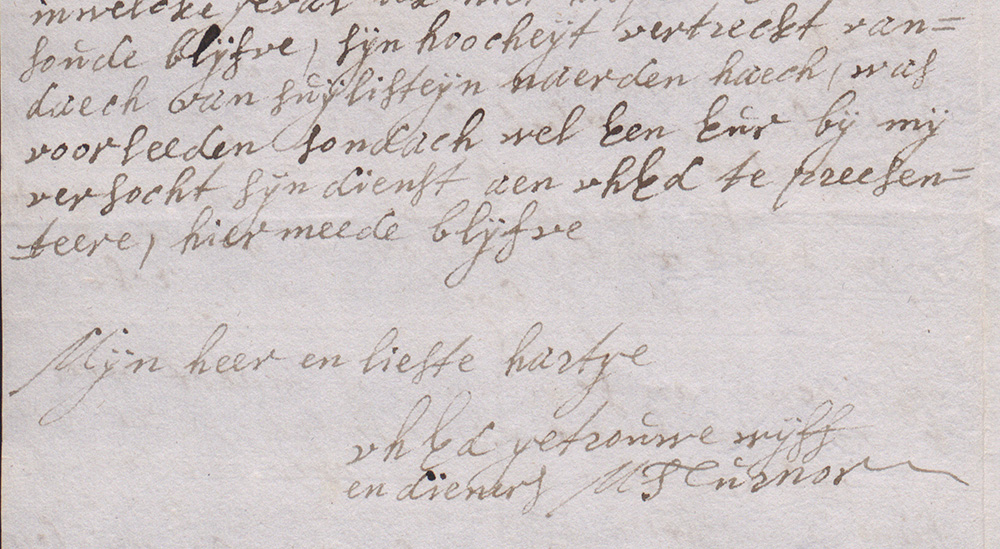 in welcke geval ick hier
soude blÿfve, sÿn hoocheÿt vertreckt van=
daech van suÿlisteÿn naerden haech, was
voorleeden sondach wel een eur bÿ mÿ
versocht sÿn dienst aen uhEd te preesen=
teere, hiermeede blÿfve
Mÿn heer en liefste hartge
uhEd getrouwe wÿff
en dienars M Turnor